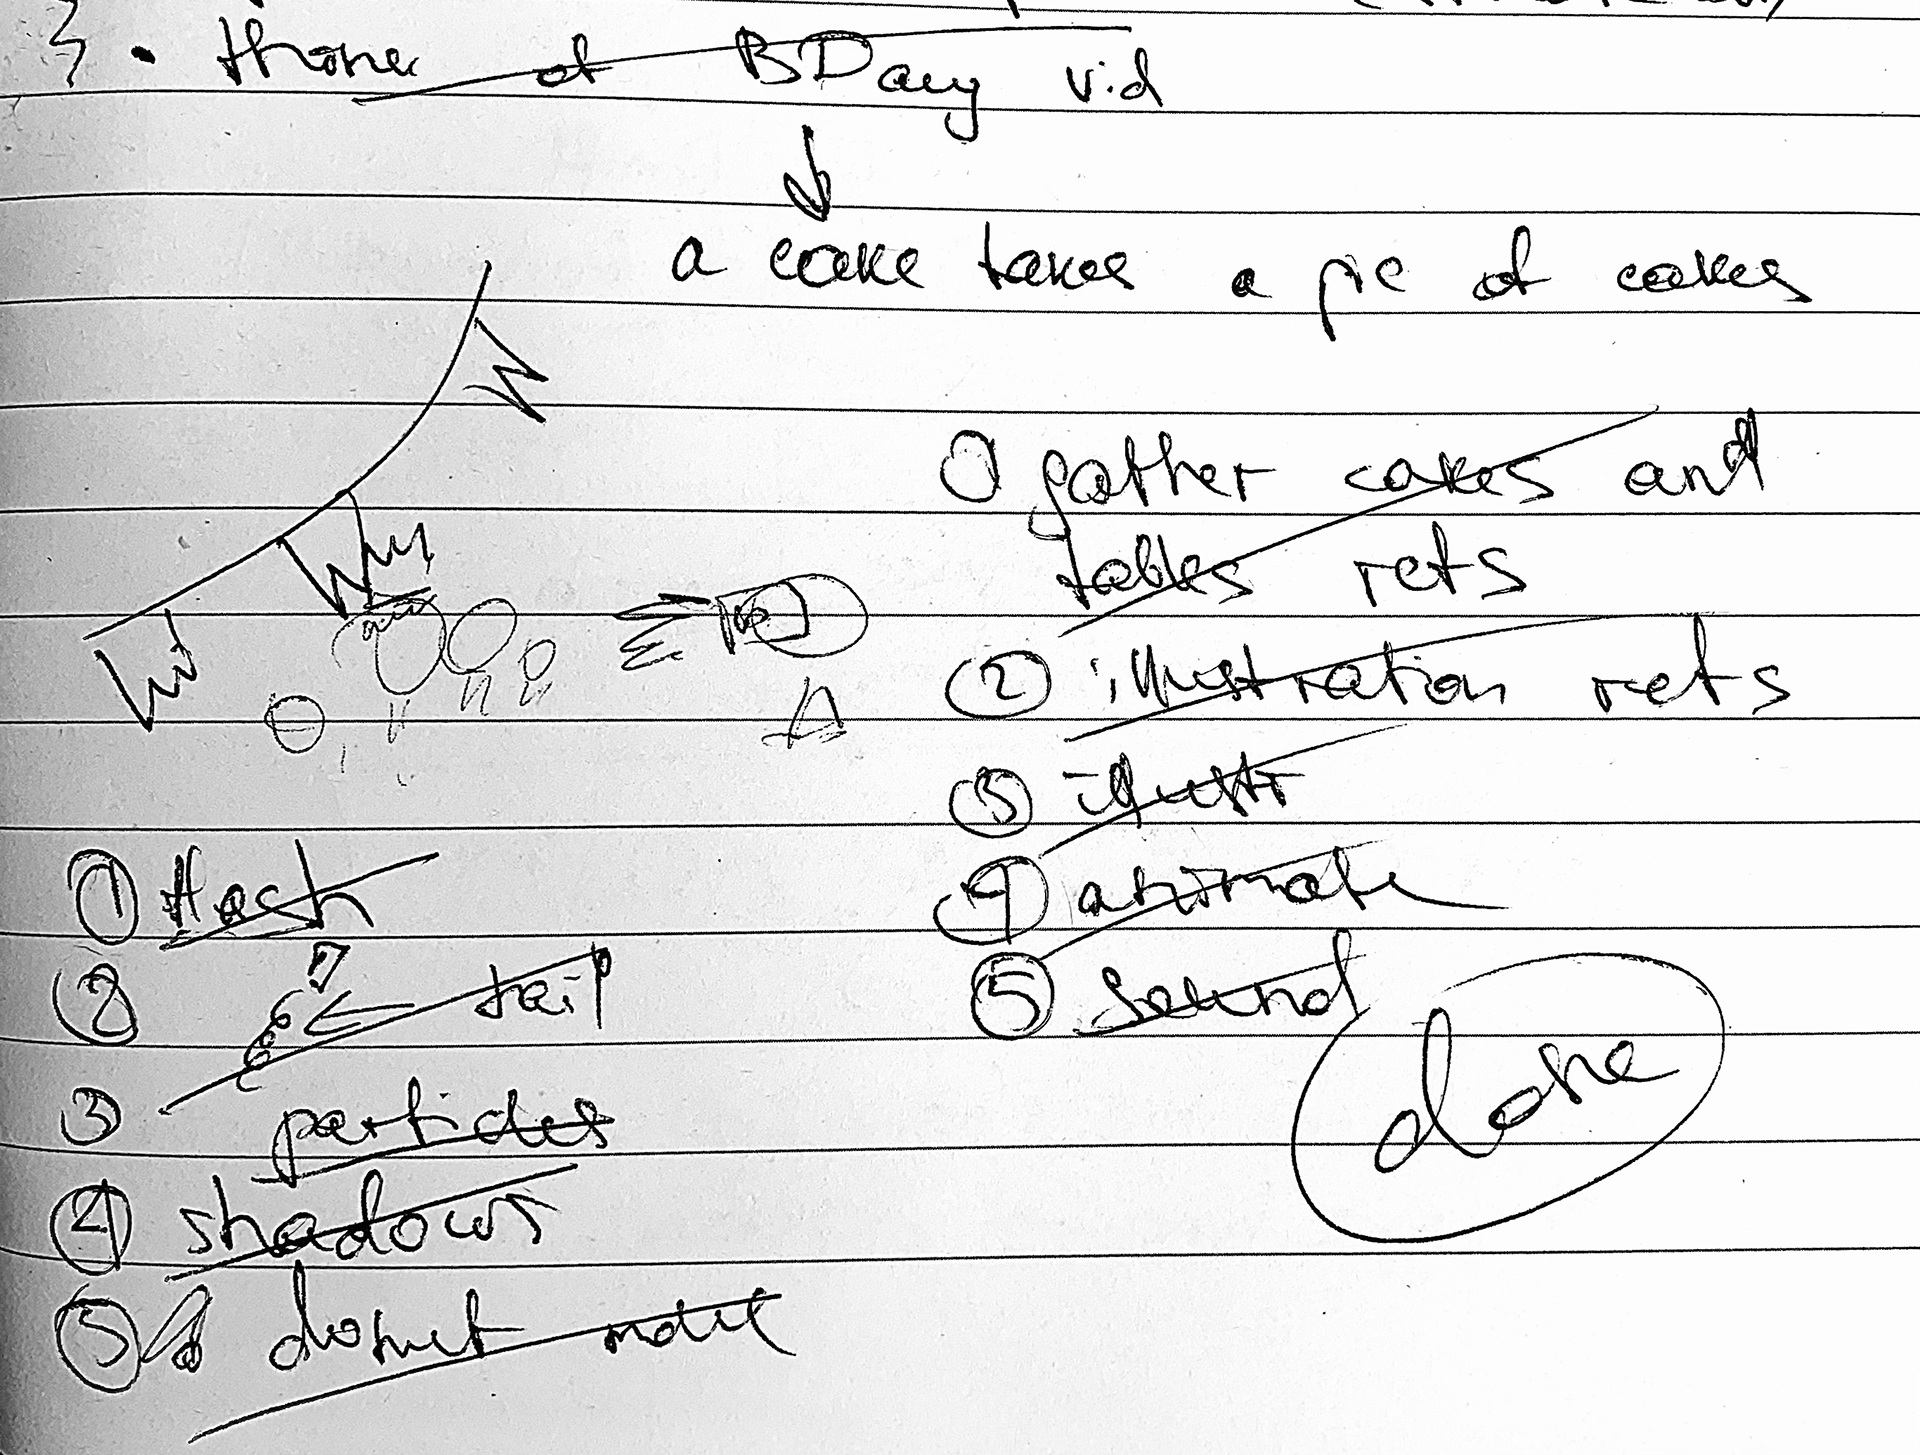 3 • throne of BDay vid
a cake takes a pic of cakes
① gather cakes and
tables refs
② illustration refs
③ illustr
④ animate
⑤ sound
done
① flash
② tail
③ particles
④ shadows
⑤ donut